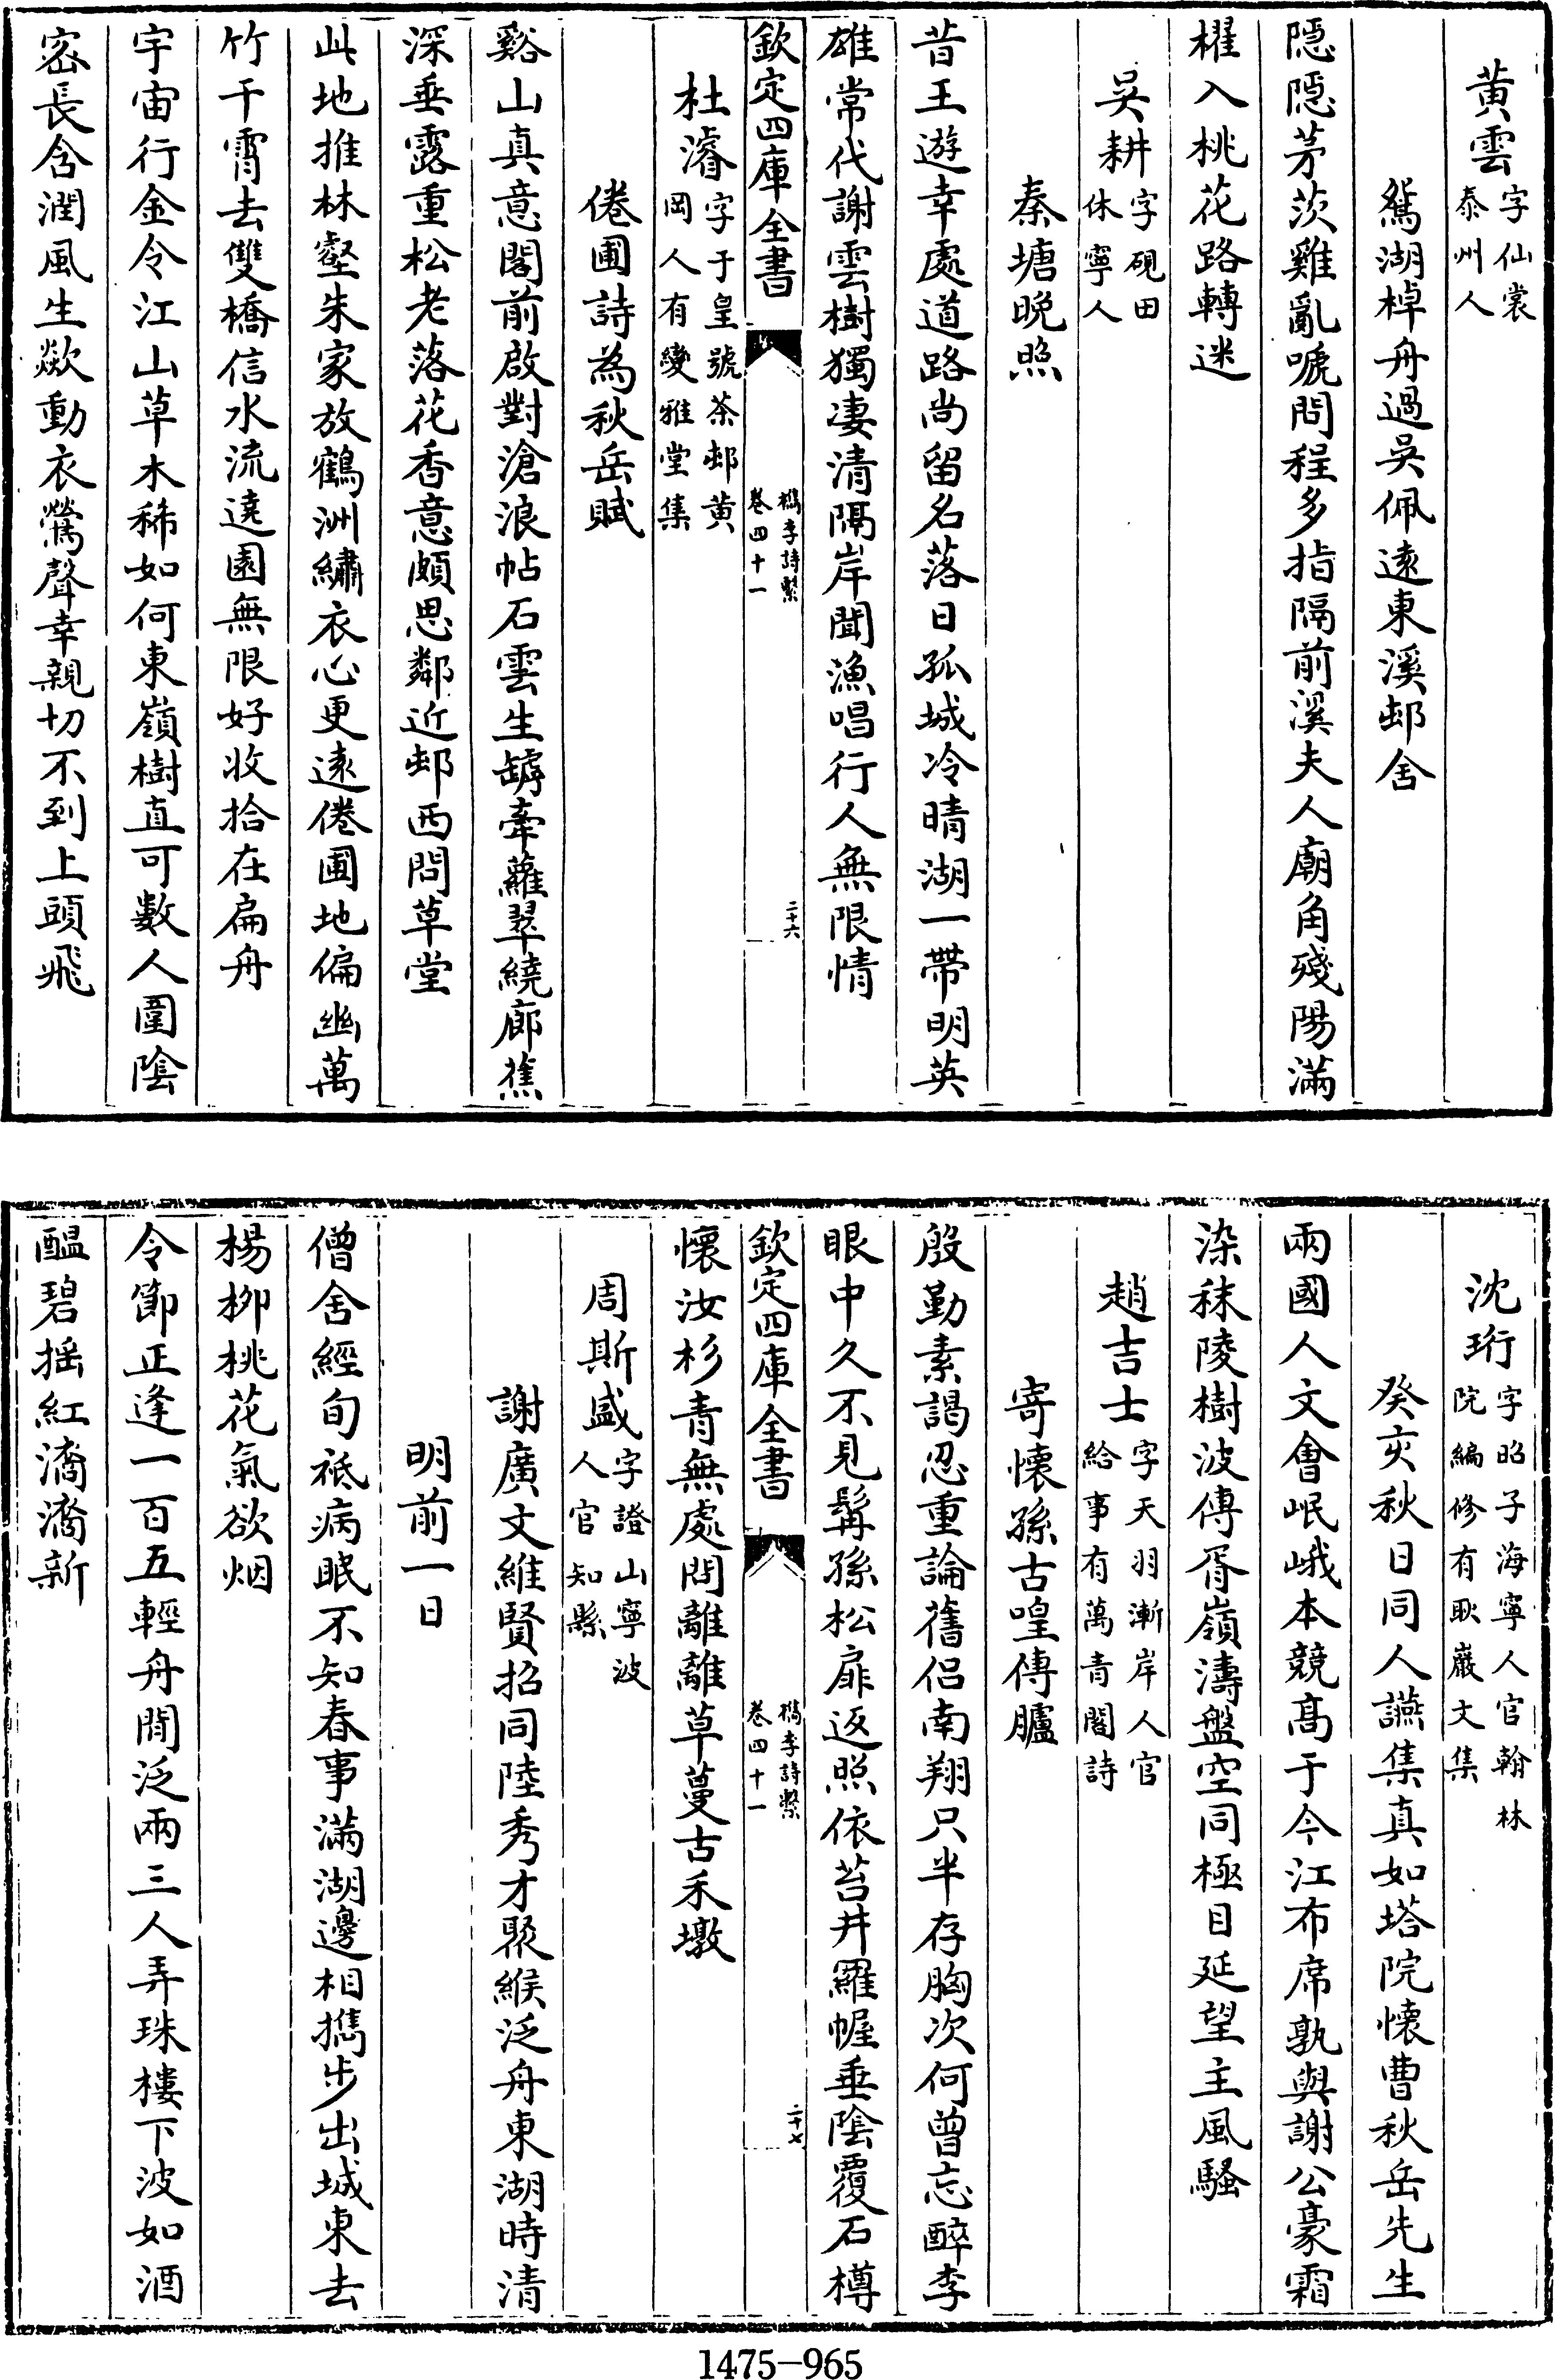 黄雲字仙裳泰州人
鴛湖棹舟過吳佩遠東溪邨舍
隠隠茅茨雞亂嗁問程多指隔前溪夫人廟角殘陽滿
櫂入桃花路轉迷
吳耕字硯田休寧人
秦塘晚照
昔王遊幸處道路尚留名落日孤城冷晴湖一帶明英
雄常代謝雲樹獨凄清隔岸聞漁唱行人無限情
欽定四庫全書
檇李詩繫
卷四十一
二十六
杜濬字于皇號茶邨黄岡人有變雅堂集
倦圃詩為秋岳賦
谿山真意閣前啟對滄浪帖石雲生罅牽蘿翠繞廊蕉
深垂露重松老落花香意頗思鄰近邨西問草堂
此地推林壑朱家放鶴洲繡衣心更遠倦圃地偏幽萬
竹干霄去雙橋信水流遶園無限好收拾在扁舟
宇宙行金令江山草木稀如何東嶺樹直可數人圍陰
密長含潤風生歘動衣鶯聲幸親切不到上頭飛
沈珩字昭子海寧人官翰林院編修有耿巖文集
癸亥秋日同人讌集真如塔院懷曹秋岳先生
兩國人文會岷峨本競髙于今江布席孰與謝公豪霜
染秣陵樹波傳胥嶺濤盤空同極目延望主風騷
趙吉士字天羽漸岸人官給事有萬青閣詩
寄懷孫古喤傳臚
殷勤素謁忍重論舊侣南翔只半存胸次何曾忘醉李
眼中久不見髯孫松扉返照依苔井羅幄垂陰覆石樽
欽定四庫全書
檇李詩繫
卷四十一
二十七
懷汝杉青無處問離離草蔓古禾墩
周斯盛字證山寧波人官知縣
謝廣文維賢招同陸秀才聚緱泛舟東湖時清
明前一日
僧舍經旬祗病眠不知春事滿湖邊相攜步出城東去
楊柳桃花氣欲烟
令節正逢一百五輕舟閒泛兩三人弄珠樓下波如酒
醖碧揺紅潏潏新
1475-965